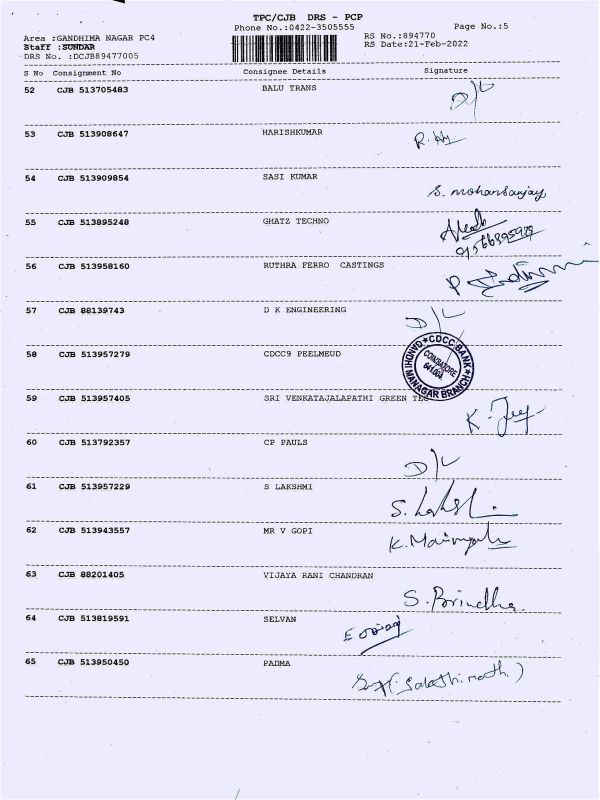 TPC/CJB DRS - PCP
Phone No.:0422-3505555
Page No.:5
Area :GANDHIMA NAGAR PC4
RS No.:894770
Staff :SUNDAR
RS Date:21-Feb-2022
DRS No. :DCJB89477005
S No Consignment No Consignee Details Signature
52 CJB 513705483 BALU TRANS D/L
53 CJB 513908647 HARISHKUMAR
54 CJB 513909854 SASI KUMAR S. mohansanjay
55 CJB 513895248 GHATZ TECHNO
56 CJB 513958160 RUTHRA FERRO CASTINGS
57 CJB 88139743 D K ENGINEERING D/L
58 CJB 513957279 CDCC9 PEELMEUD
CDCC BANK
GANDHI MANAGAR BRANCH
COIMBATORE
641 004.
59 CJB 513957405 SRI VENKATAJALAPATHI GREEN TEC
60 CJB 513792357 CP PAULS D/L
61 CJB 513957229 S LAKSHMI
62 CJB 513943557 MR V GOPI
63 CJB 88201405 VIJAYA RANI CHANDRAN S. Brindha
64 CJB 513819591 SELVAN
65 CJB 513950450 PADMA